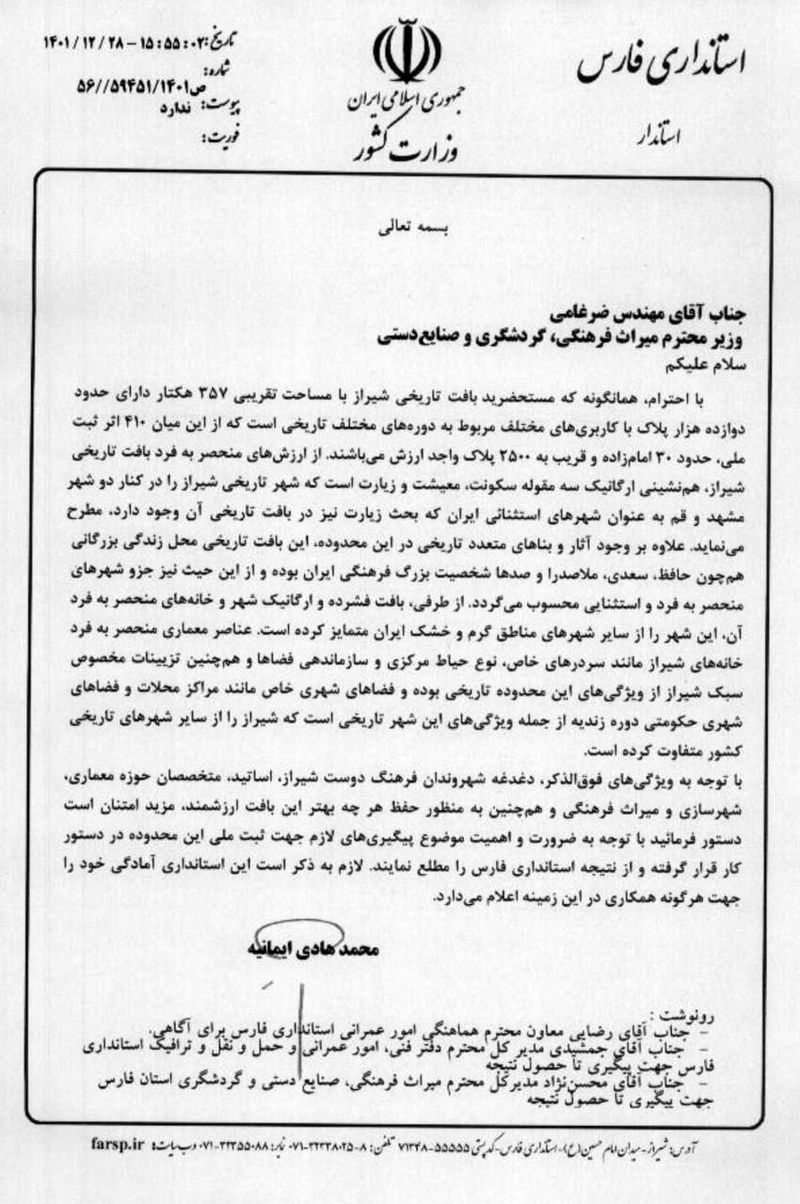 استانداری فارس
استاندار
جمهوری اسلامی ایران
وزارت کشور
تاریخ: ۱۴۰۱/۱۲/۲۸ - ۱۵:۵۵:۰۲
شماره:
۵۶//۵۹۴۵۱/۱۴۰۱ص
پیوست: ندارد
فوریت:
بسمه تعالی
جناب آقای مهندس ضرغامی
وزیر محترم میراث فرهنگی، گردشگری و صنایع‌دستی
سلام علیکم
با احترام، همانگونه که مستحضرید بافت تاریخی شیراز با مساحت تقریبی ۳۵۷ هکتار دارای حدود
دوازده هزار پلاک با کاربری‌های مختلف مربوط به دوره‌های مختلف تاریخی است که از این میان ۴۱۰ اثر ثبت
ملی، حدود ۳۰ امام‌زاده و قریب به ۲۵۰۰ پلاک واجد ارزش می‌باشند. از ارزش‌های منحصر به فرد بافت تاریخی
شیراز، هم‌نشینی ارگانیک سه مقوله سکونت، معیشت و زیارت است که شهر تاریخی شیراز را در کنار دو شهر
مشهد و قم به عنوان شهرهای استثنائی ایران که بحث زیارت نیز در بافت تاریخی آن وجود دارد، مطرح
می‌نماید. علاوه بر وجود آثار و بناهای متعدد تاریخی در این محدوده، این بافت تاریخی محل زندگی بزرگانی
هم‌چون حافظ، سعدی، ملاصدرا و صدها شخصیت بزرگ فرهنگی ایران بوده و از این حیث نیز جزو شهرهای
منحصر به فرد و استثنایی محسوب می‌گردد. از طرفی، بافت فشرده و ارگانیک شهر و خانه‌های منحصر به فرد
آن، این شهر را از سایر شهرهای مناطق گرم و خشک ایران متمایز کرده است. عناصر معماری منحصر به فرد
خانه‌های شیراز مانند سردرهای خاص، نوع حیاط مرکزی و سازماندهی فضاها و هم‌چنین تزیینات مخصوص
سبک شیراز از ویژگی‌های این محدوده تاریخی بوده و فضاهای شهری خاص مانند مراکز محلات و فضاهای
شهری حکومتی دوره زندیه از جمله ویژگی‌های این شهر تاریخی است که شیراز را از سایر شهرهای تاریخی
کشور متفاوت کرده است.
با توجه به ویژگی‌های فوق‌الذکر، دغدغه شهروندان فرهنگ دوست شیراز، اساتید، متخصصان حوزه معماری،
شهرسازی و میراث فرهنگی و هم‌چنین به منظور حفظ هر چه بهتر این بافت ارزشمند، مزید امتنان است
دستور فرمائید با توجه به ضرورت و اهمیت موضوع پیگیری‌های لازم جهت ثبت ملی این محدوده در دستور
کار قرار گرفته و از نتیجه استانداری فارس را مطلع نمایند. لازم به ذکر است این استانداری آمادگی خود را
جهت هرگونه همکاری در این زمینه اعلام می‌دارد.
محمد هادی ایمانیه
رونوشت :
- جناب آقای رضایی معاون محترم هماهنگی امور عمرانی استانداری فارس برای آگاهی.
- جناب آقای جمشیدی مدیر کل محترم دفتر فنی، امور عمرانی و حمل و نقل و ترافیک استانداری
فارس جهت پیگیری تا حصول نتیجه
- جناب آقای محسن‌نژاد مدیرکل محترم میراث فرهنگی، صنایع دستی و گردشگری استان فارس
جهت پیگیری تا حصول نتیجه
آدرس: شیراز-میدان امام حسین(ع)-استانداری فارس-کدپستی ۵۵۵۵۵-۷۱۳۴۸ تلفن: ۸-۳۲۳۳۸۰۲۵-۰۷۱ نمابر: ۳۲۳۵۵۰۸۸-۰۷۱ وب سایت: farsp.ir